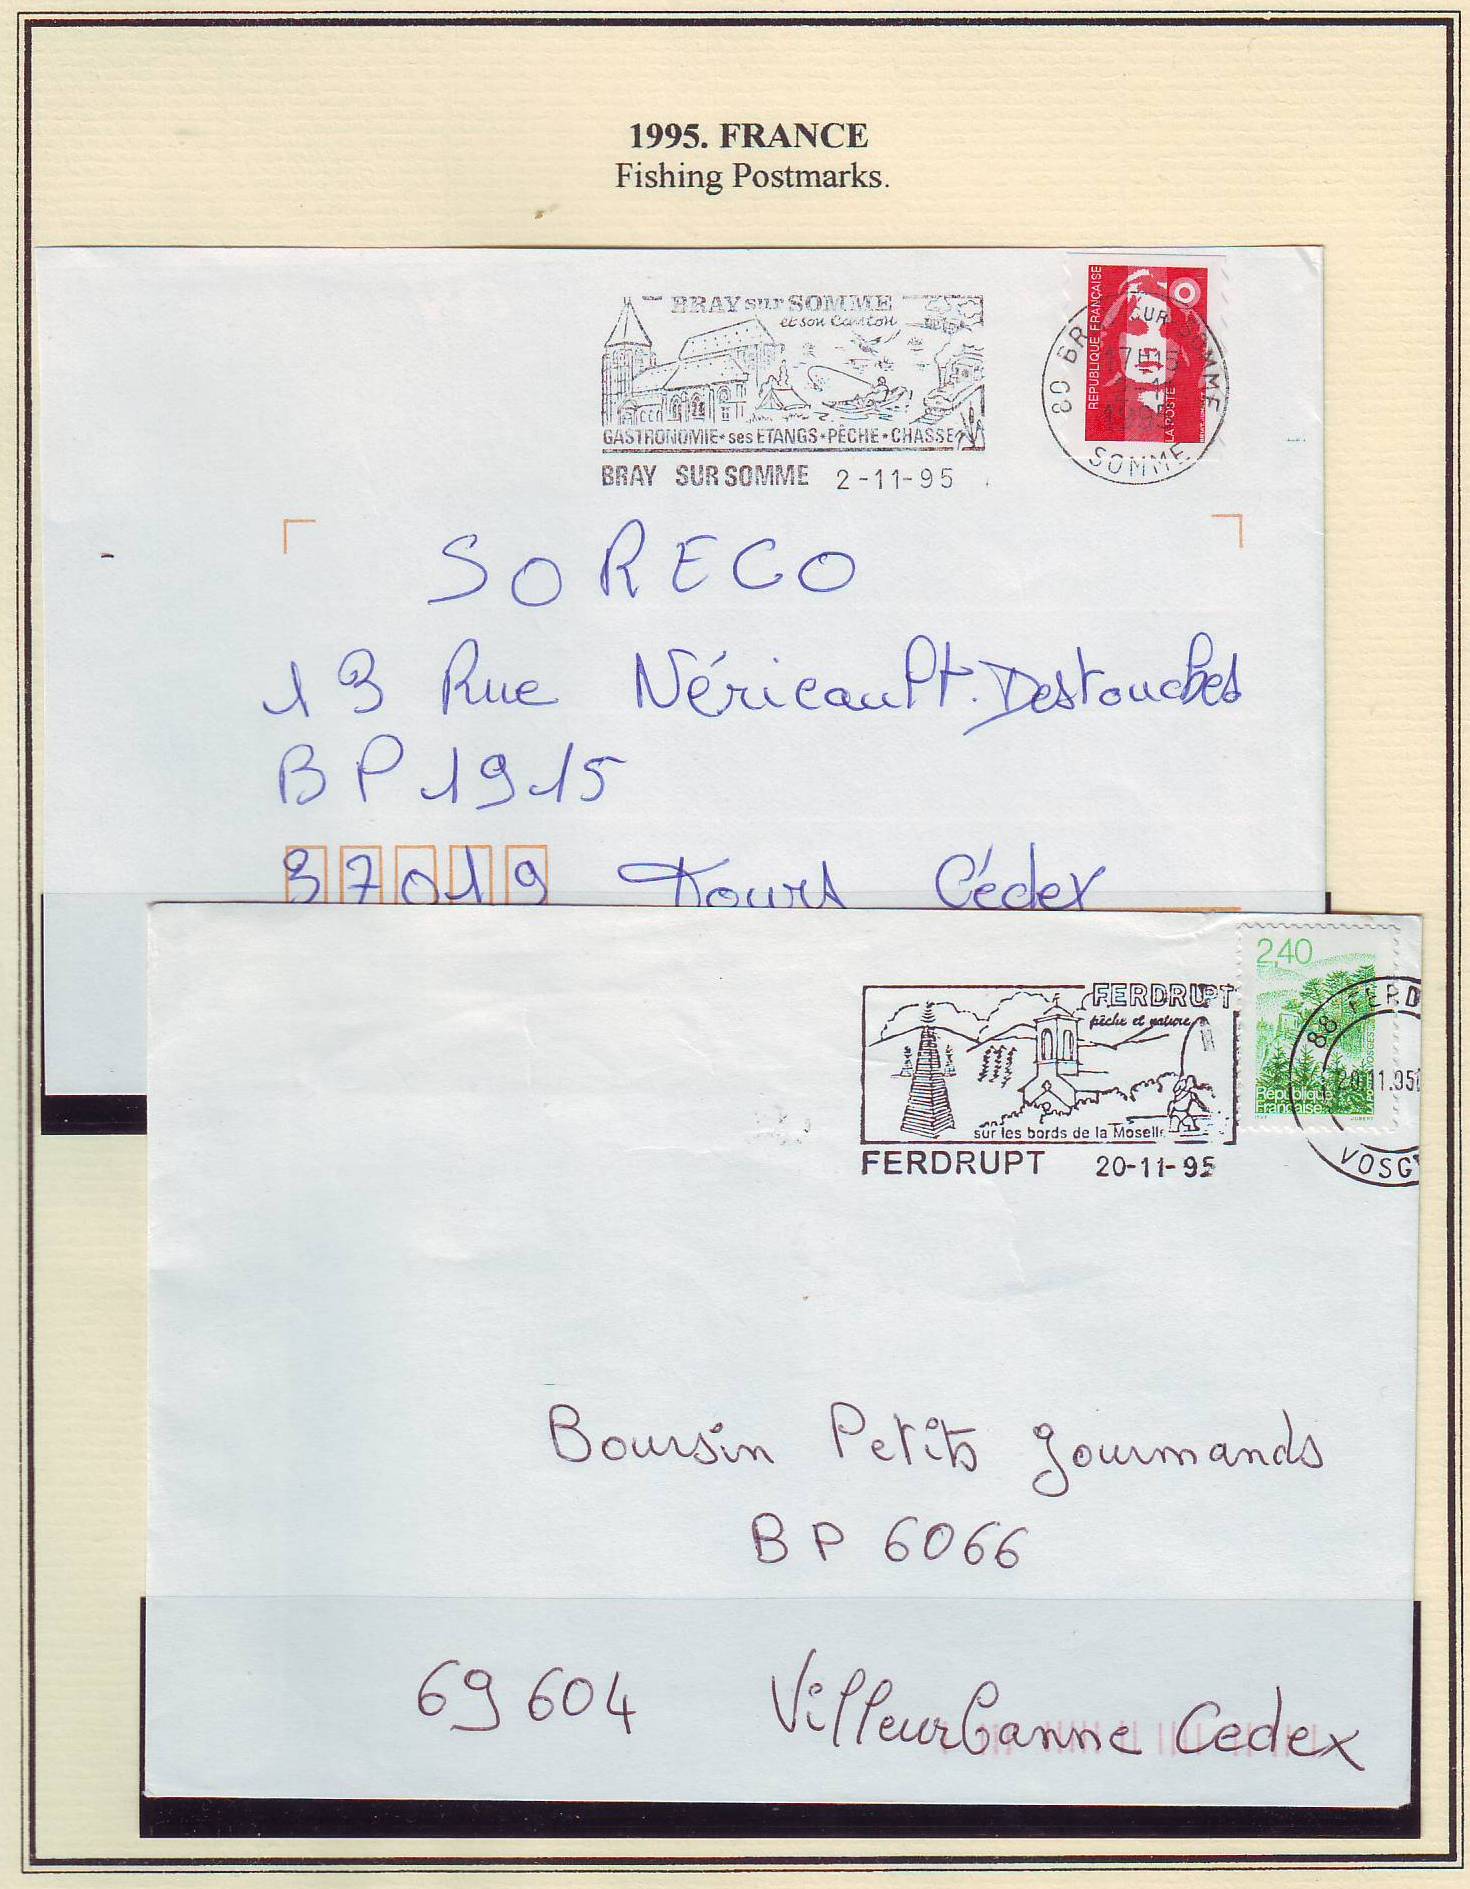 1995. FRANCE
Fishing Postmarks.
BRAY sur SOMME
et son Canton
GASTRONOMIE • ses ETANGS • PÊCHE • CHASSE
BRAY SUR SOMME 2-11-95
REPUBLIQUE FRANÇAISE
LA POSTE
80 BR SUR SOMME
1995
SOMME
SORECO
13 Rue Néricault. Destouches
BP 1915
37019 Tours Cédex
2,40
République
Française
LA POSTE
VOSGES
FERDRUPT
pêche et nature
sur les bords de la Moselle
FERDRUPT 20-11-95
88 FERD
20.11.95
VOSG
Boursin Petits Gourmands
BP 6066
69604 Villeurbanne Cedex